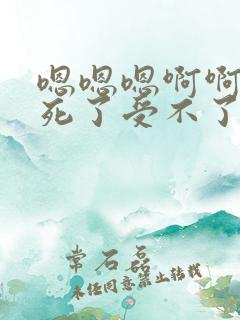 嗯嗯嗯啊啊
死了受不了
常石磊
未经同意禁止转载